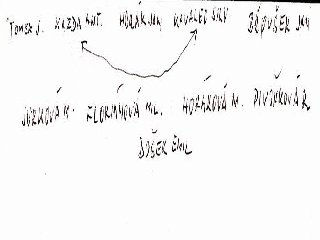 TOMEK J. KAZDA ANT. HORÁK JAN KOVALEC SILV BÉDUŠEK JAN
JURKOVÁ M. FLORIÁNOVÁ ML. HORÁKOVÁ M. DIVIŠKOVÁ R
DUŠEK EMIL